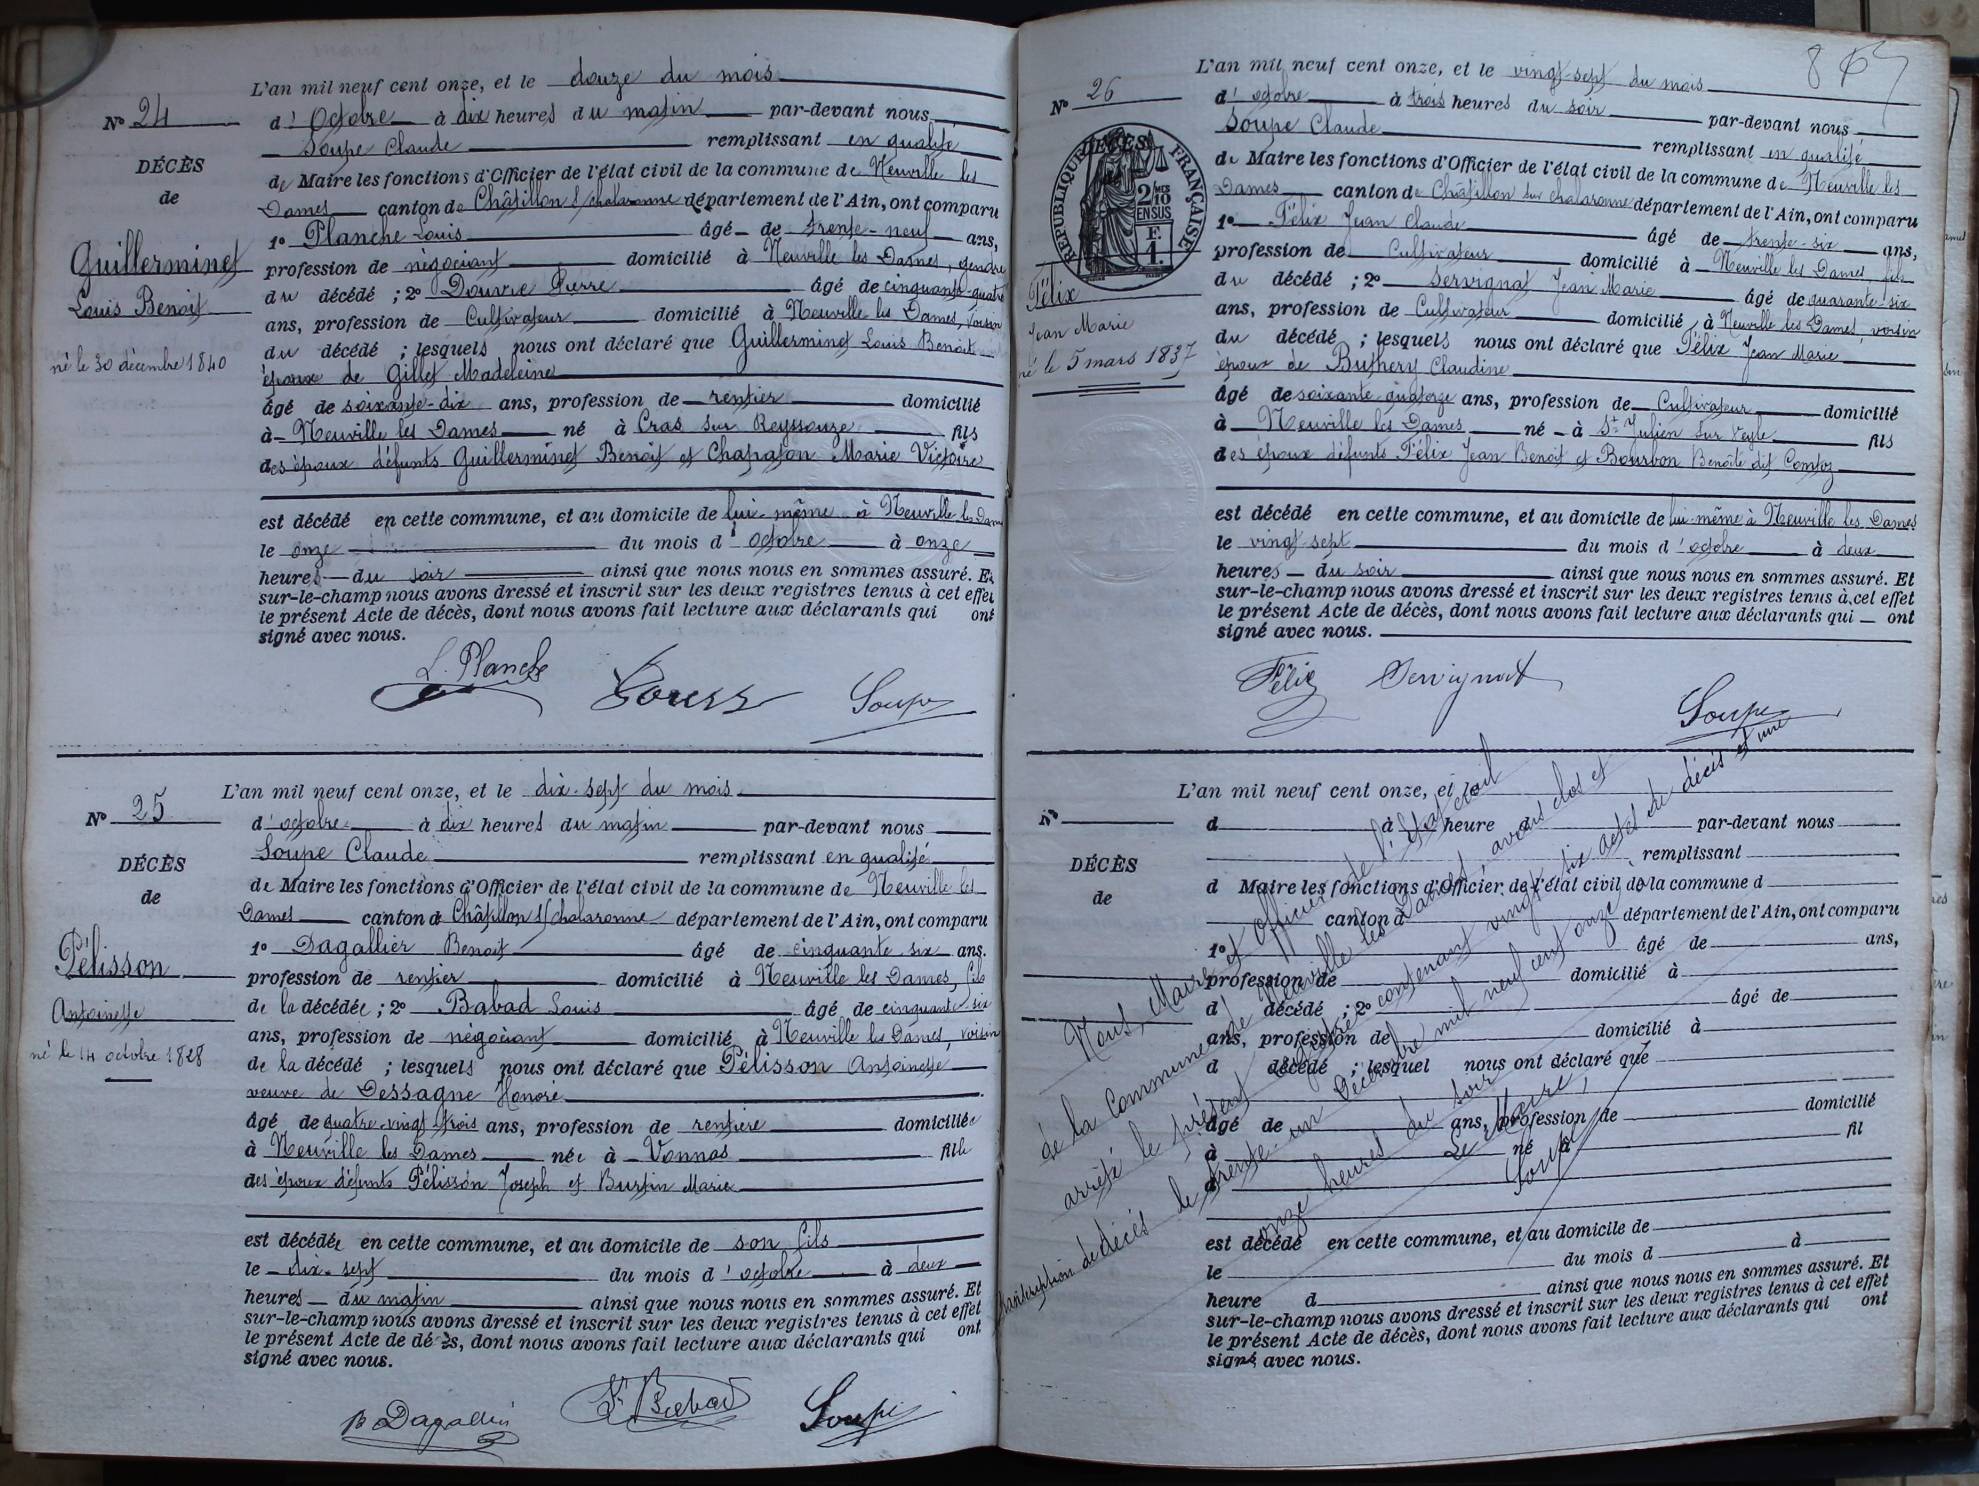 L'an mil neuf cent onze, et le douze du mois
N° 24
d'Octobre à dix heures du matin par-devant nous
Soupe Claude remplissant en qualité
DÉCÈS
de Maire les fonctions d'Officier de l'état civil de la commune de Neuville les
de
Dames canton de Châtillon s/chalaronne département de l'Ain, ont comparu
1° Planche Louis âgé de trente-neuf ans,
Guillerminet
profession de négociant domicilié à Neuville les Dames, gendre
Louis Benoit
du décédé ; 2° Pierre âgé de cinquante-quatre
ans, profession de Cultivateur domicilié à Neuville les Dames, voisin
né le 30 décembre 1840
du décédé ; lesquels nous ont déclaré que Guillerminet Louis Benoit
époux de Gillet Madeleine
âgé de soixante-dix ans, profession de rentier domicilié
à Neuville les Dames né à Cras sur Reyssouze fils
des époux défunts Guillerminet Benoit et Chapaton Marie Victoire
est décédé en cette commune, et au domicile de lui-même à Neuville les Dames
le onze du mois d'octobre à onze
heures du soir ainsi que nous nous en sommes assuré. Et
sur-le-champ nous avons dressé et inscrit sur les deux registres tenus à cet effet
le présent Acte de décès, dont nous avons fait lecture aux déclarants qui ont
signé avec nous.
L. Planche Soupe
L'an mil neuf cent onze, et le dix-sept du mois
N° 25
d'octobre à dix heures du matin par-devant nous
Soupe Claude remplissant en qualité
DÉCÈS
de Maire les fonctions d'Officier de l'état civil de la commune de Neuville les
de
Dames canton de Châtillon s/chalaronne département de l'Ain, ont comparu
1° Dagallier Benoit âgé de cinquante-six ans.
Pélisson
profession de rentier domicilié à Neuville les Dames, fils
Antoinette
de la décédée ; 2° Babad Louis âgé de cinquante-six
ans, profession de négociant domicilié à Neuville les Dames, voisin
né le 14 octobre 1828
de la décédé ; lesquels nous ont déclaré que Pélisson Antoinette
veuve de Dessagne Honoré
âgé de quatre-vingt trois ans, profession de rentière domiciliée
à Neuville les Dames née à Vonnas fille
des époux défunts Pélisson Joseph et Burtin Marie
est décédée en cette commune, et au domicile de son fils
le dix-sept du mois d'octobre à deux
heures du matin ainsi que nous nous en sommes assuré. Et
sur-le-champ nous avons dressé et inscrit sur les deux registres tenus à cet effet
le présent Acte de décès, dont nous avons fait lecture aux déclarants qui ont
signé avec nous.
B Dagallier L. Babad Soupe
L'an mil neuf cent onze, et le vingt-sept du mois
N° 26
d'octobre à trois heures du soir par-devant nous
Soupe Claude remplissant en qualité
RÉPUBLIQUE FRANÇAISE
DÉCÈS
2/10
EN SUS
F.
1.
de Maire les fonctions d'Officier de l'état civil de la commune de Neuville les
Dames canton de Châtillon sur chalaronne département de l'Ain, ont comparu
1° Félix Jean Claude âgé de trente-six ans,
profession de Cultivateur domicilié à Neuville les Dames fils
du décédé ; 2° Servignat Jean Marie âgé de quarante-six
Félix
Jean Marie
né le 5 mars 1837
ans, profession de Cultivateur domicilié à Neuville les Dames, voisin
du décédé ; lesquels nous ont déclaré que Félix Jean Marie
époux de Buthery Claudine
âgé de soixante quatorze ans, profession de Cultivateur domicilié
à Neuville les Dames né à St Julien sur Veyle fils
des époux défunts Félix Jean Benoit et Bourbon Benoîte dit
est décédé en cette commune, et au domicile de lui-même à Neuville les Dames
le vingt sept du mois d'octobre à deux
heures du soir ainsi que nous nous en sommes assuré. Et
sur-le-champ nous avons dressé et inscrit sur les deux registres tenus à cet effet
le présent Acte de décès, dont nous avons fait lecture aux déclarants qui ont
signé avec nous.
Félix Servignat
Soupe
L'an mil neuf cent onze, et le
N°
d à heure d par-devant nous
remplissant
DÉCÈS
d Maire les fonctions d'Officier de l'état civil de la commune d
de
canton d département de l'Ain, ont comparu
1° âgé de ans,
profession de domicilié à
d décédé ; 2° âgé de
ans, profession de domicilié à
d décédé ; lesquel nous ont déclaré que
âgé de ans, profession de domicilié
à né à fil
d
est décédé en cette commune, et au domicile de
le du mois d à
heure d ainsi que nous nous en sommes assuré. Et
sur-le-champ nous avons dressé et inscrit sur les deux registres tenus à cet effet
le présent Acte de décès, dont nous avons fait lecture aux déclarants qui ont
signé avec nous.
Nous, Maire et Officier de l'état civil
de la Commune de Neuville les Dames, avons clos et
arrêté le présent registre contenant vingt-six actes de décès et une
transcription de décès le trente-un Décembre mil neuf cent onze, à
onze heures du soir
Le Maire,
Soupe